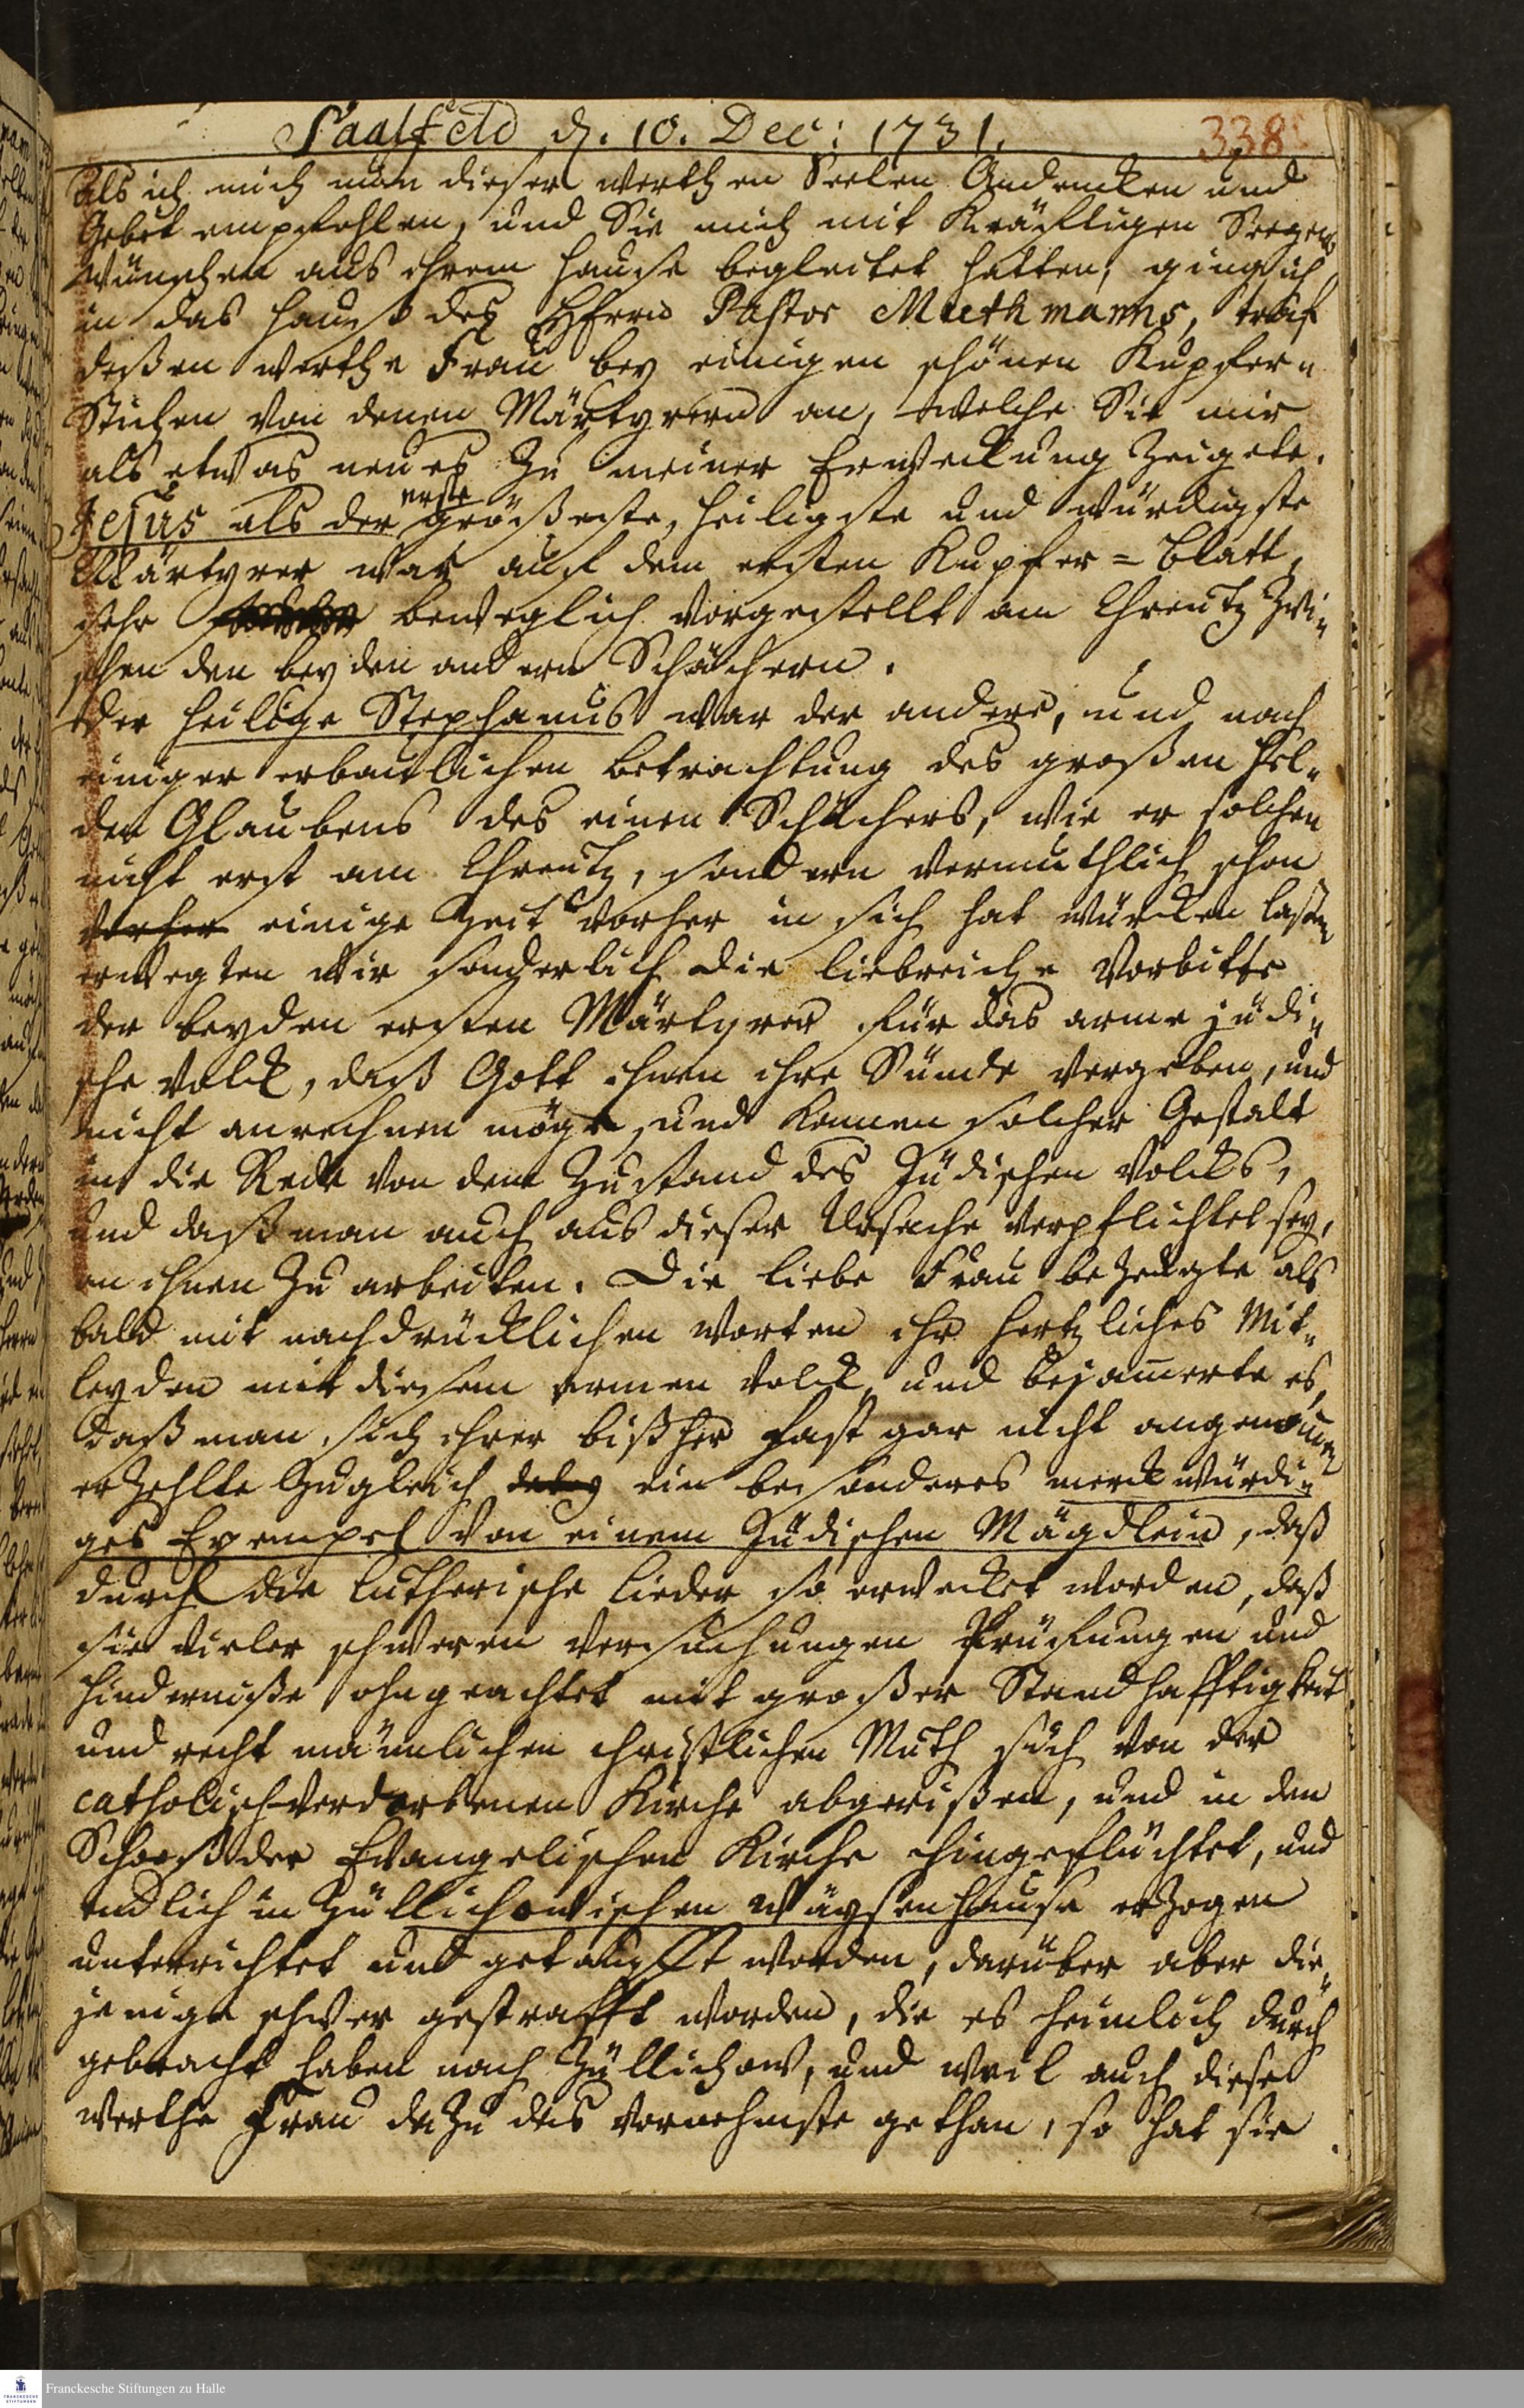 Saalfeld d. 10. Dec: 1731.
338
Als ich mich nun dieser werthen Seelen Andencken und
Gebet empfohlen, und Sie mich mit kräfftigen Seegens
Wünschen aus ihrem Hause begleitet hatten, ging ich
in das Hauß des Herrn Pastor Muthmanns, traf
deßen werthe Frau bey einigen schönen Kupfer-
Stichen von denen Märtyrern an, welche Sie mir
als etwas neues zu meiner Erweckung zeigete.
erste
Jesus als der größeste, heiligste und würdigste
Märtyrer war auf dem ersten Kupfer=Blatt,
sehr beweglich vorgestellt am Creutz zwi-
schen den beyden andern Schächern.
der heilige Stephanus war der andere, und nach
einiger erbaulichen Betrachtung des großen Hel-
den Glaubens des einen Schächers, wie er solchen
nicht erst am Creutz, sondern vermuthlich schon
vorher einige Zeit vorher in sich hat würcken laßen
erwegten wir sonderlich die liebreiche Vorbitte
der beyden ersten Märtyrer für das arme jüdi-
sche Volck, daß Gott ihnen ihre Sünde vergeben, und
nicht anrechnen möge, und kamen solcher Gestalt
in die Rede von dem Zustand des Jüdischen Volcks,
und daß man auch aus dieser Ursache verpflichtet sey,
an ihnen zu arbeiten. Die liebe Frau bezeugte als
bald mit nachdrücklichen Worten ihr hertzliches Mit-
leyden mit diesem armen Volck, und bejam̄erte es,
daß man sich ihrer bißher fast gar nicht angenom̄en
erzehlte zugleich ein besonderes merckwürdi-
ges Exempel von einem Jüdischen Mägdlein, daß
durch die lutherische Lieder so erwecket worden, daß
sie vieler schweren Versuchungen Prüfungen und
Hinderniße ohngeachtet mit großer Standhafftigkeit
und recht männlichen christlichen Muth sich von der
catholisch-verdorbenen Kirche abgerißen, und in den
Schooß der Evangelischen Kirche hingeflüchtet, und
endlich in Züllichowischen Wäysenhause erzogen
unterrichtet und getaufft worden, darüber aber die-
jenige schwer gestrafft worden, die es heimlich durch
gebracht haben nach Züllichow, und weil auch diese
werthe Frau dazu das vornehmste gethan, so hat sie
Franckesche Stiftungen zu Halle